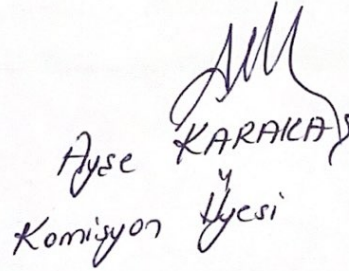 Ayşe KARAKAŞ
Komisyon Üyesi